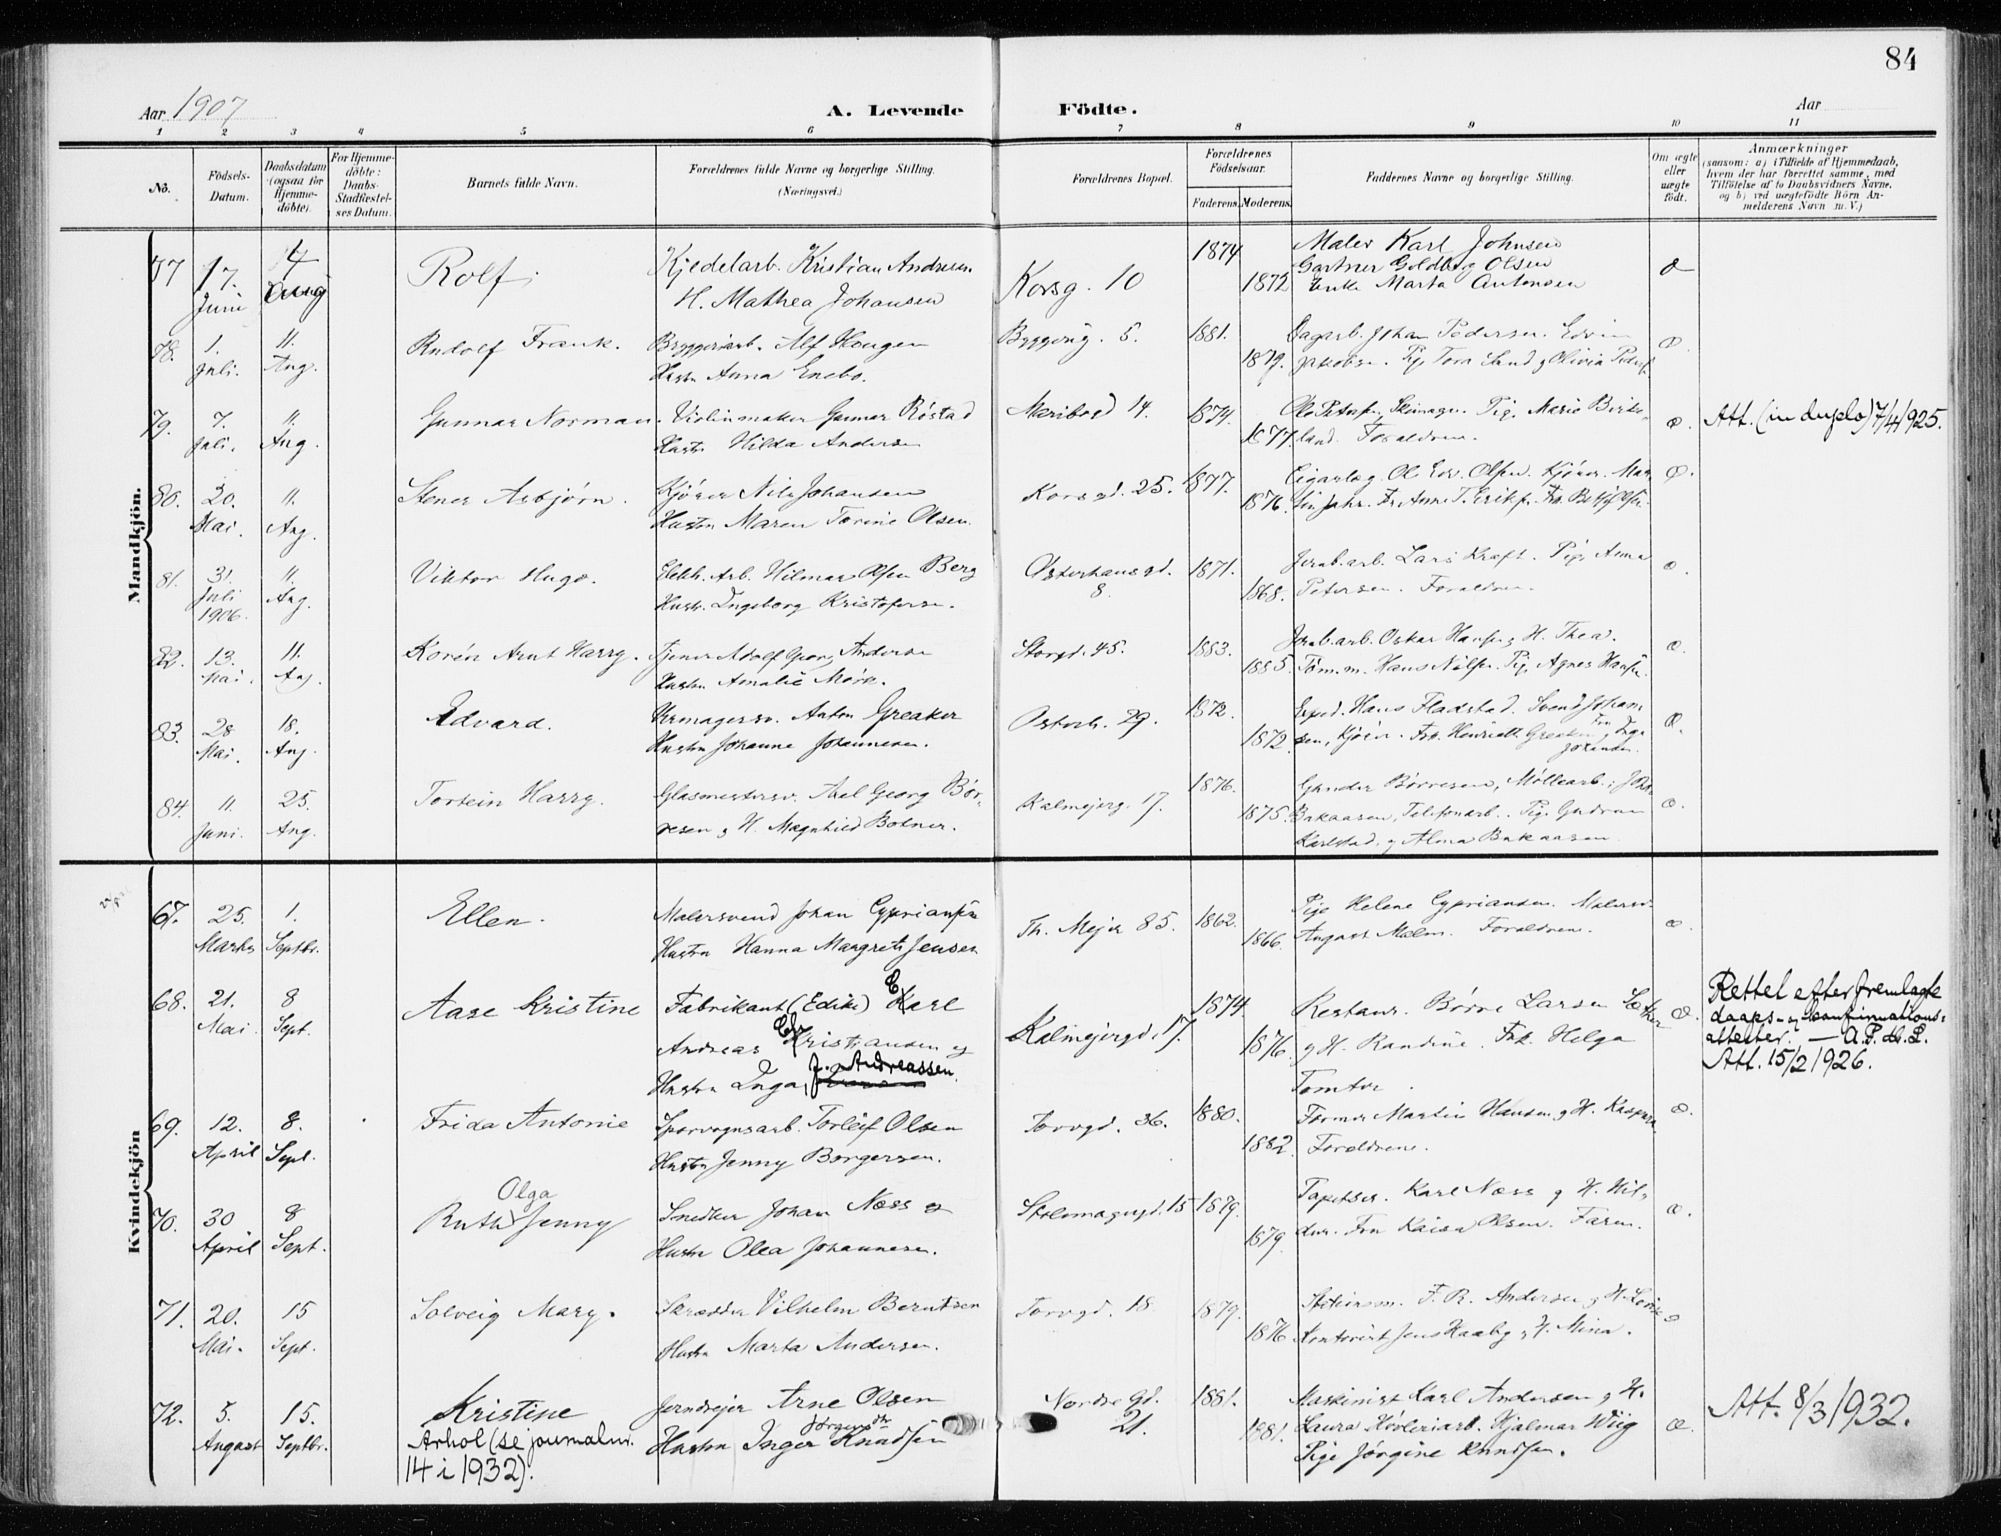 84
Aar 1907
A. Levende Födte.
Aar
1 2 3 4 5 6 7 8 9 10 11
No.
Födsels-Datum.
Daabsdatum (ogsaa for Hjemme-döbte).
For Hjemme-döbte: Daabs-Stadfæstel-ses Datum.
Barnets fulde Navn.
Forældrenes fulde Navne og borgerlige Stilling. (Næringsvei.)
Forældrenes Bopæl.
Forældrenes Födselsaar.
Faderens. Moderens.
Faddernes Navne og borgerlige Stilling.
Om ægte eller uægte födt.
Anmærkninger
(saasom: a) i Tilfælde af Hjemmedaab, hvem der har forrettet samme, med Tilföielse af to Daabsvidners Navne, og b) ved uægtefödte Börn An-melderens Navn m. V.)
Mandkjön.
77 17. Juni 4 Aug Rolf. Kjedelarb. Kristian Andresen
H. Mathea Johansen Korsg. 10 1874 1872 Maler Karl Johnsen
Gartner Goldberg Olsen
Enke Marta Antonsen
78. 1. Juli. 11. Aug. Rudolf Frank. Bryggeriarb. Alf Haugen
Hustru Anna Enebo. 5. 1881. 1879. Dagarb. Johan Pedersen. Edvin
Jakobsen. Pige Tora Sand g Olivia
79. 7. Juli. 11. Aug. Gunnar Norman. Violinmaker Gunnar Röstad
Hustru Hilda Andersen Maribogd 14. 1874. 1877. Pige Marie Birke-
land. Forældrene. æ. Att. (in duplo) 7/4 1925.
80. 20. Mai. 11. Aug. Stener Asbjørn. Kjörer Nils Johansen
Hustru Maren Torine Olsen. Korsgd. 25. 1877. 1876. Ol. Edv. Olsen. Kjörer
81. 31. Juli 1906. 11. Aug. Viktor Hugo. Elekt. Arb. Hilmar Olsen Berg
Hustr. Ingeborg Kristofersen. Osterhausgd. 8. 1871. 1868. Jernb.arb. Lars Kraft. Pige Anna
Petersen. Forældrene. æ.
82. 13. Mai. 11. Aug. Korén Arnt Harry. Tjener Adolf Georg Andersen
Hustru Amalie Mörk. Storgd. 45. 1883. 1885. Jernb.arb. Oskar Hansen g H. Thea.
Tömm.m. Hans Nilsen. Pige Agnes Hansen æ.
83. 28. Mai. 18. Aug. Edvard. Urmagersv. Anton Greaker
Hustru Johanne Johannesen. Osterh. 29. 1872. 1872. Exped. Hans Fladstad. Svend Johan-
sen, Kjörer. Frk. Henriette Greaker g Fru Inga
Johansen. æ.
84. 11. Juni. 25. Aug. Torstein Harry. Glasmestersv. Axel Georg Bör-
resen g H. Magnhild Bolner. Kalmejerg. 17. 1876. 1875. Gunder Börresen, Möllearb.; Joh.
Bakaasen, Telefonarb.. Pige Gudrun
Karlstad. g Alma Bakaasen. æ.
Kvindekjön
67. 25. Marts 1. Septbr. Ellen. Malersvend Johan Cypriansen
Hustru Hanna Margrete Jensen Th. Mejer 85. 1862. 1866. Pige Helene Cypriansen. Malersv.
August Malm. Forældrene. æ.
68. 21. Mai. 8 Sept. Aase Kristine Fabrikant (Edike) C Karl
Andreas Chr Kristiansen og
Hustru Inga, J. Andreassen. Kalmejergd. 17. 1874 1876. Restaur. Börre Larsen Sæther
g H. Randine. Frk. Helga
Tomter. æ. Rettet efter fremlagte
daaps- og konfirmations-
attester. — A.P. M.L.
Att. 15/2 1926.
69. 12. April 8. Sept. Frida Antonie Sporvognsarb. Torleif Olsen
Hustru Jenny Borgersen. Torvgd. 36. 1880. 1882 Former Martin Hansen g H. Kaspara.
Forældrene. æ.
70. 30 April 8 Sept. Ruth Olga Jenny Snedker Johan Næss og
Hustru Olea Johannesen. Stolmagergd. 15 1879. 1879. Tapetser. Karl Næss g H. Hil-
dur. Fru Kaisa Olsen. Faren. æ.
71. 20. Mai. 15 Sept. Solveig Mary. Skrædder Vilhelm Berntsen
Hustru Marta Andersen. Torvgd. 18. 1879. 1876 F. R. Andersen g H. Lovise
Kontorist Jens Haaby g H. Mina.
72. 5. August 15. Septbr. Kristine
Arhol (se journalnr.
14 i 1932). Jerndrejer Arne Olsen
Hustru Inger Jörgine Knudsen Nordre Gd. 21. 1881. 1881. Maskinist Karl Andersen g H.
Laura Hjalmar Wiig
Pige Jörgine Knudsen. æ. Att. 8/3 1932.